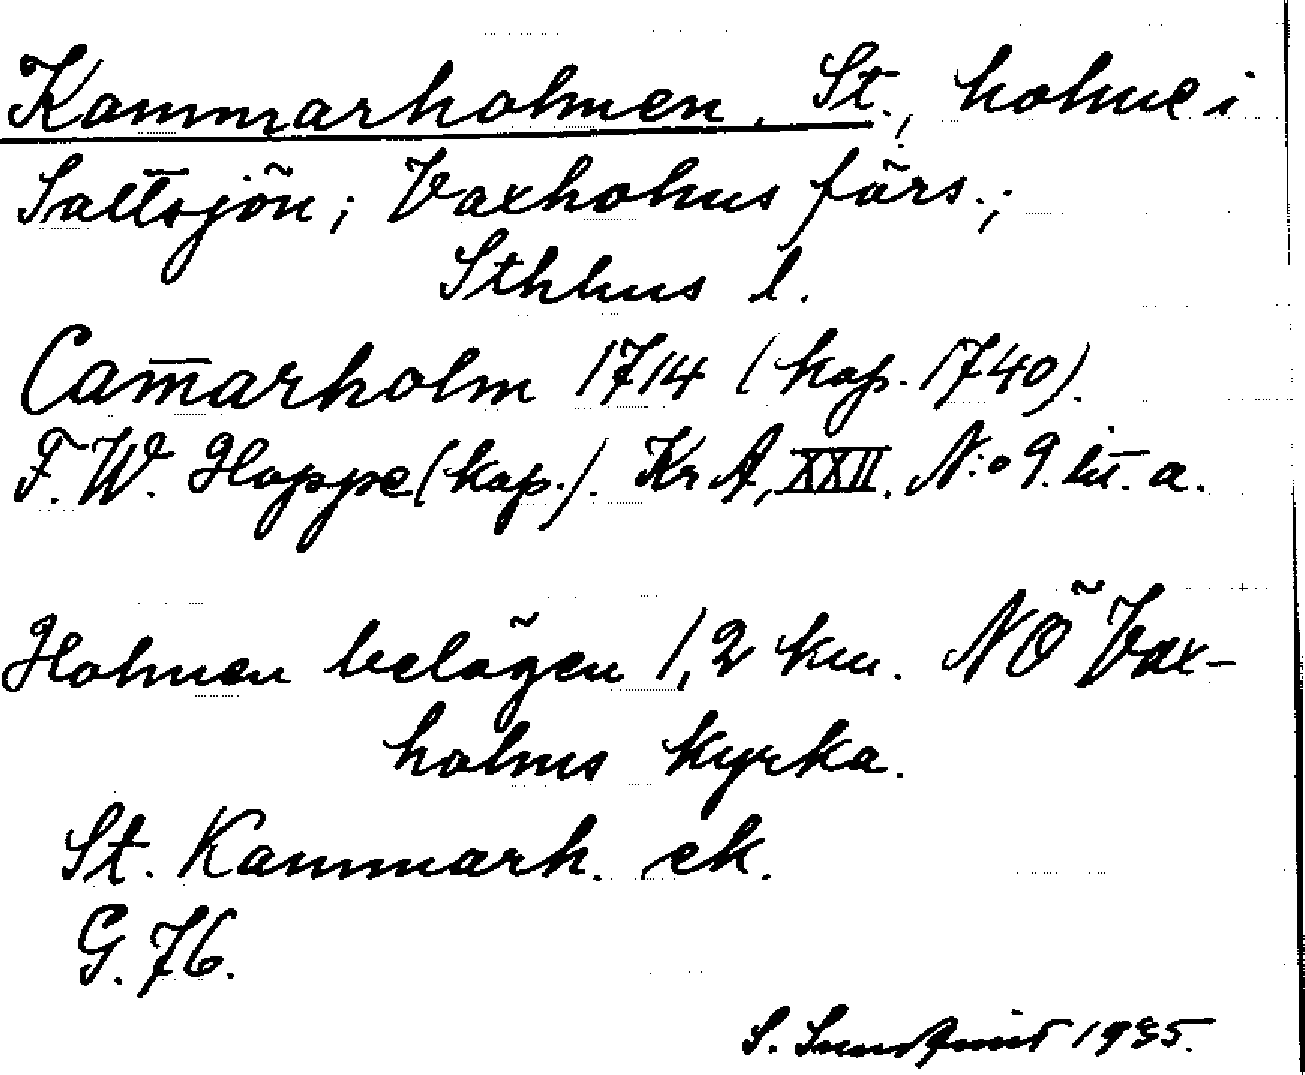 Kammarholmen, St., holme i
Saltsjön; Vaxholms förs.;
Sthlms l.
Cam̄arholm 1714 (kop. 1740).
F. W. Hoppe (kop.). KrA, XXII. N:o 9. lit. a.
Holmen belägen 1,2 km. NÖ Vax-
holms kyrka.
St. Kammarh. ek.
G. 76.
S. Sundqvist 1935.